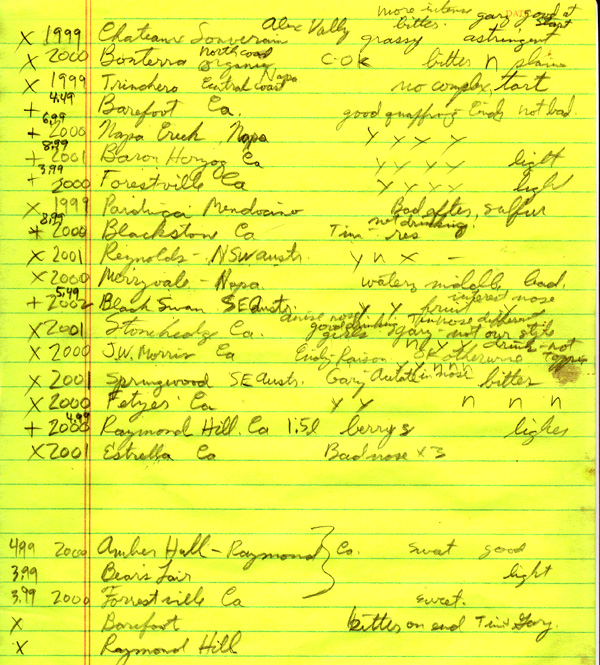 more intense gary good at
Alex Vally bitter. start
X 1999 Chateau Souverain grassy astringent
X 2000 Bonterra North coast organic C-Ok bitter n plain
X 1999 Trinchero Central coast Napa no complex, tart
4.49
+ Barefoot Ca. good quaffing Endy not bad.
6.99
+ 2000 Napa Creek Napa y y y y
8.99
+ 2001 Baron Herzog Ca y y y y light
3.99
+ 2000 Forestville Ca y y y y light
X 1999 Parducci Mendocino Bad after, sulfur
8.99 not drinking
+ 2000 Blackston Ca Tina - res
X 2001 Reynolds - NSW austr. y n x -
X 2000 Merryvale - Napa watery middle, bad.
5.49 interest nose
+ 2002 Black Swan SE Austr. y y fruit
anise nose Tina nose different
X 2001 Stonehedge Ca. good drinking girls gary - not our style
n y x y drink - not
X 2000 J.W. Morris Ca Endy Raison OK otherwise
y n n n
X 2001 Springwood SE Austr. Gary nose bitter
X 2000 Fetzer Ca y y n n n
4.99
+ 2000 Raymond Hill Ca 1.5l berry s lighes
X 2001 Estrella Ca Bad nose x 3
4.99 2000 Amber Hill - Raymond Ca. sweat good
3.99 Bear's Lair light
3.99 2000 Forrestville Ca sweet.
X Barefoot bitter on end Tina Gary.
X Raymond Hill